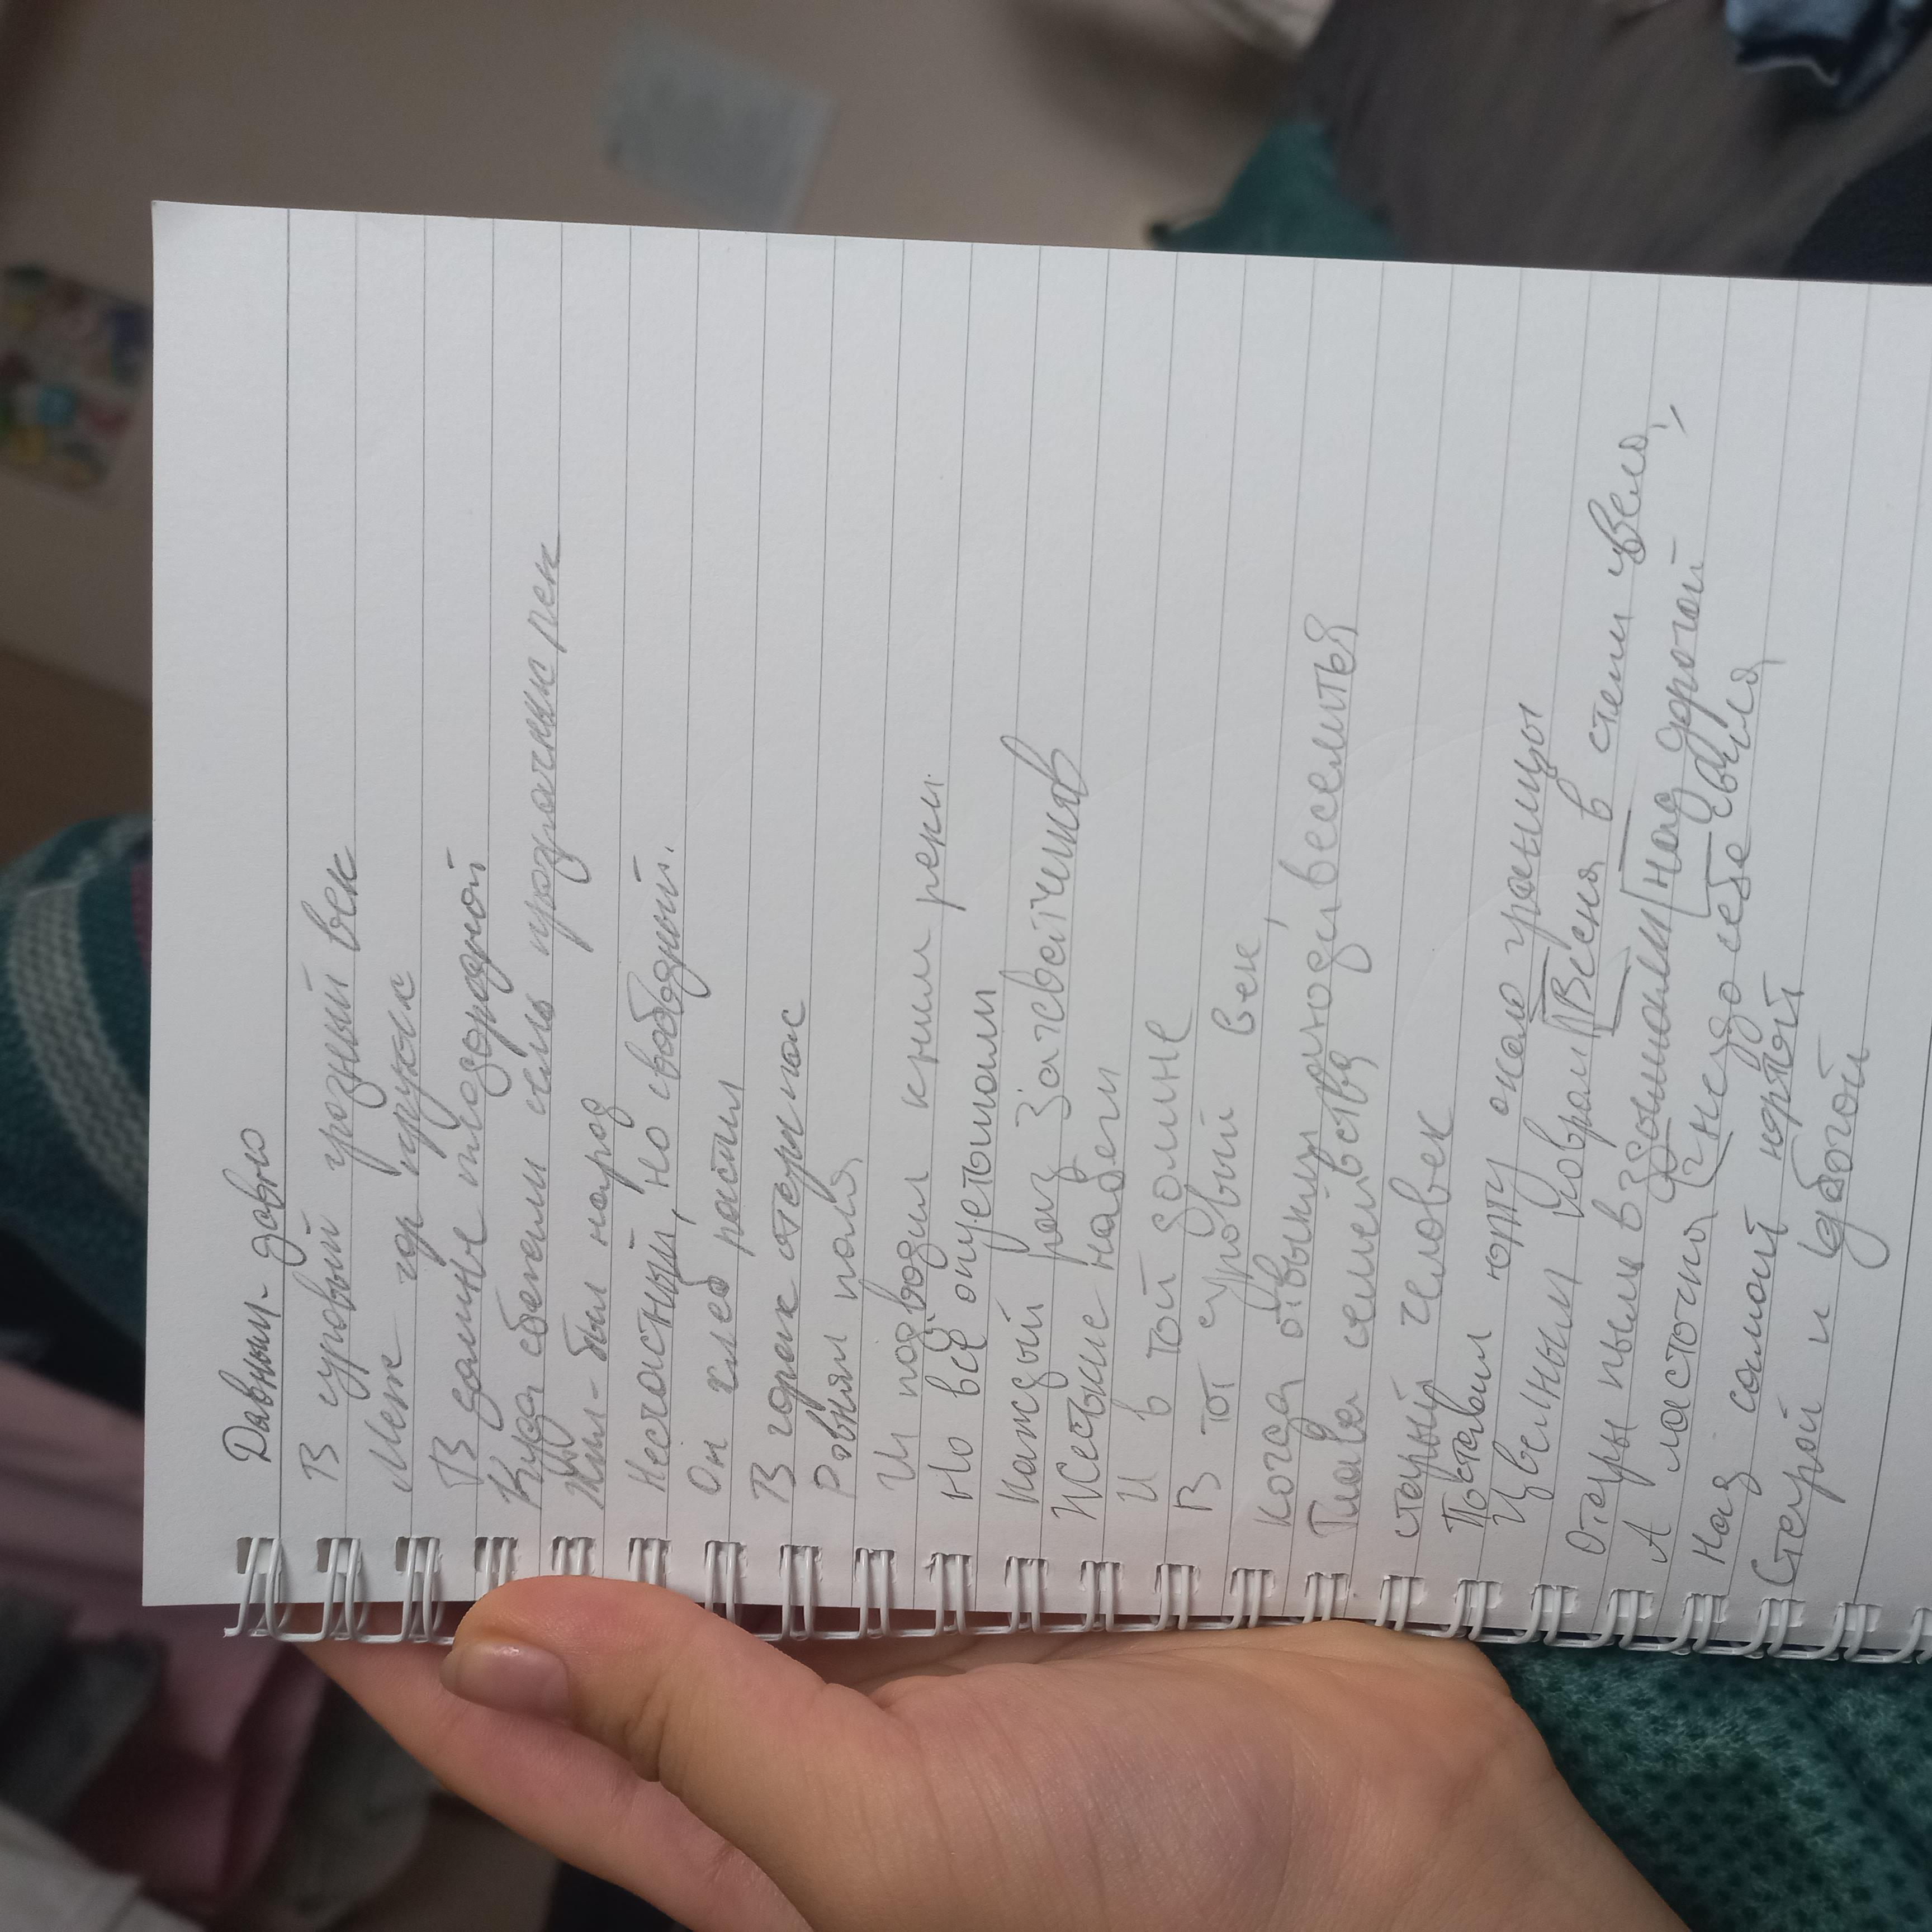 Давным-давно
В суровый грозный век
Меж гор крутых
В долине плодородной
Куда сбегали семь прозрачных рек
Жил-был народ
Несчастный, но свободный.
Он хлеб растил
В горах отары пас
Ровнял поля,
И подводил к ним реки
Но всё опустошали
Каждый раз Зачватчиков
Жестокие набеги
И в той долине
В тот суровый век,
Когда отвыкли люди веселиться
Глава семейства
старый человек
Поставил юрту около границы
Цветным ковром Весна в степи цвела,
Отары пыль вздымали над дорогой,
А ласточка гнездо себе свила,
Над самой юртой
Старой и убогой